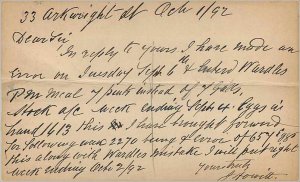 33 Arkwright St Oct 1/92
Dear Sir
In reply to yours I have made an
error on Tuesday Sept. 6th & Entered Wardles
Pea Meal 7 pents instead of 7
Stock a/c week ending Eggs in
hand 1613 this I have brought forward
for following was 2270 being error of 657
this along with Wardles mistake I will put right
week ending Oct 2/92 Yours truly